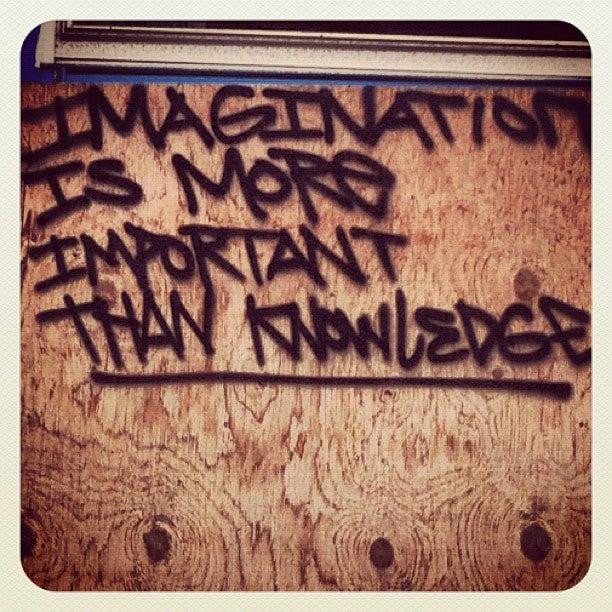 IMAGINATION
IS MORE
IMPORTANT
THAN KNOWLEDGE